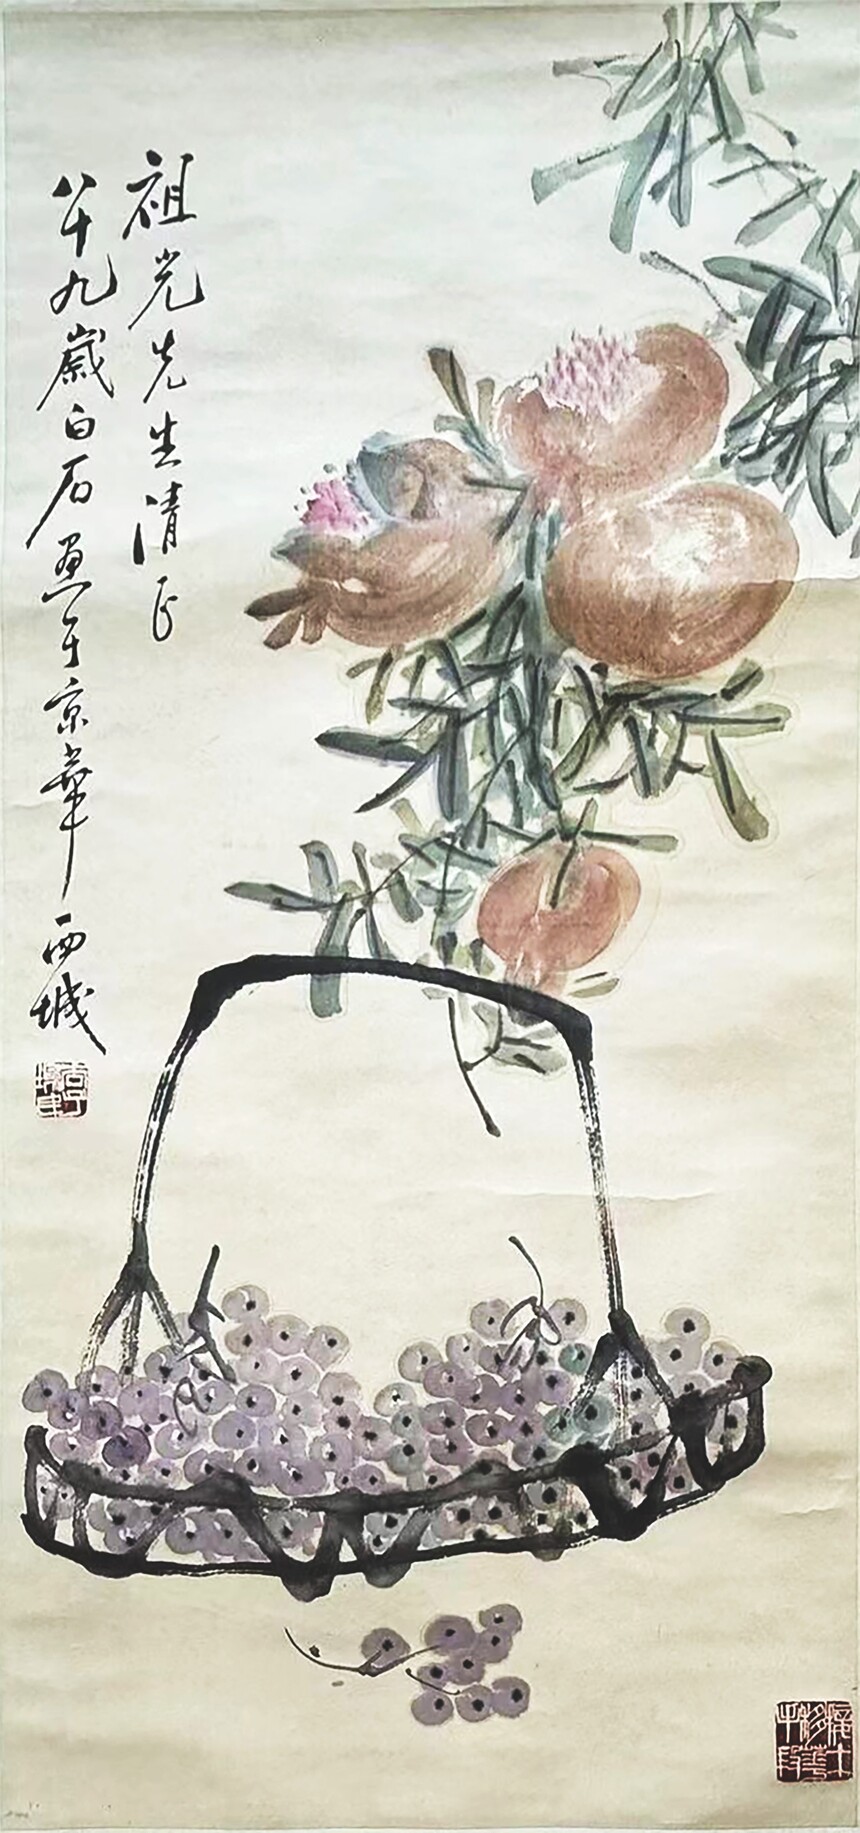 祖光先生清正
八十九岁白石画于京華西城